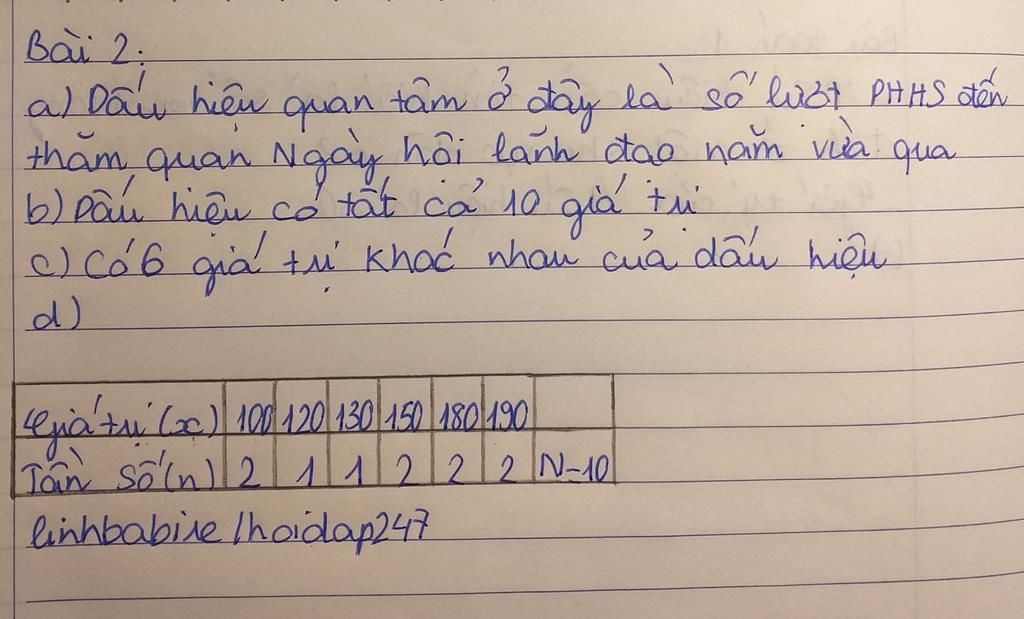 Bài 2:
a) Dấu hiệu quan tâm ở đây là số lượt PHHS đến
thăm quan Ngày hội lãnh đạo năm vừa qua
b) Dấu hiệu có tất cả 10 giá trị
c) Có 6 giá trị khác nhau của dấu hiệu
d)
Giá trị (x) 100 120 130 150 180 190
Tần số (n) 2 1 1 2 2 2 N=10
linhbabine/hoidap247